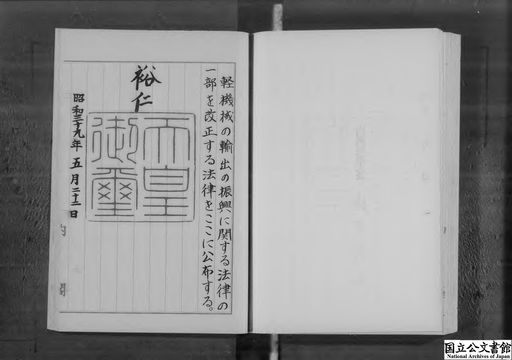 軽機械の輸出の振興に関する法律の
一部を改正する法律をここに公布する。
裕仁
天皇
御璽
昭和三十九年五月二十二日
国立公文書館
National Archives of Japan